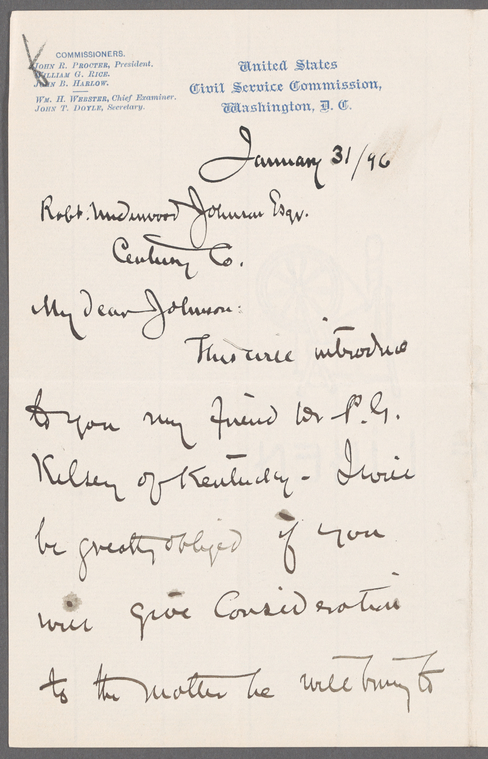 COMMISSIONERS.
JOHN R. PROCTER, President.
WILLIAM G. RICE.
JOHN B. HARLOW.
WM. H. WEBSTER, Chief Examiner.
JOHN T. DOYLE, Secretary.
United States
Civil Service Commission,
Washington, D. C.
January 31/96
Robt. Underwood Johnson Esqr.
Century Co.
My dear Johnson:
This will introduce
to you my friend Mr P. G.
Kelsey of Kentucky - I will
be greatly obliged if you
will give Consideration
to the matter he will bring to